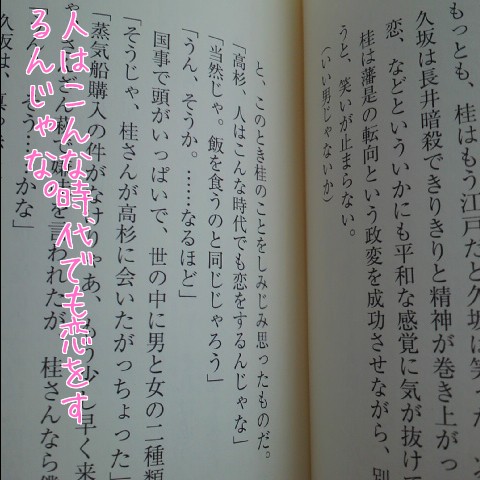 もっとも、桂はもう江戸だと久坂は笑った。
久坂は長井暗殺できりきりと精神が巻き上がっ
恋、などといういかにも平和な感覚に気が抜け
桂は藩是の転向という政変を成功させながら、別
うと、笑いが止まらない。
(いい男じゃないか)
と、このとき桂のことをしみじみ思ったものだ。
「高杉、人はこんな時代でも恋をするんじゃな」
「当然じゃ。飯を食うのと同じじゃろう」
「うん、そうか。……なるほど」
国事で頭がいっぱいで、世の中に男と女の二種類
「そうじゃ、桂さんが高杉に会いたがっちょった」
「蒸気船購入の件がなけりゃあ、もう少し早く来
を言われたが、桂さんなら僕
そう……かな」
久坂は、
人はこんな時代でも恋をす
るんじゃな。